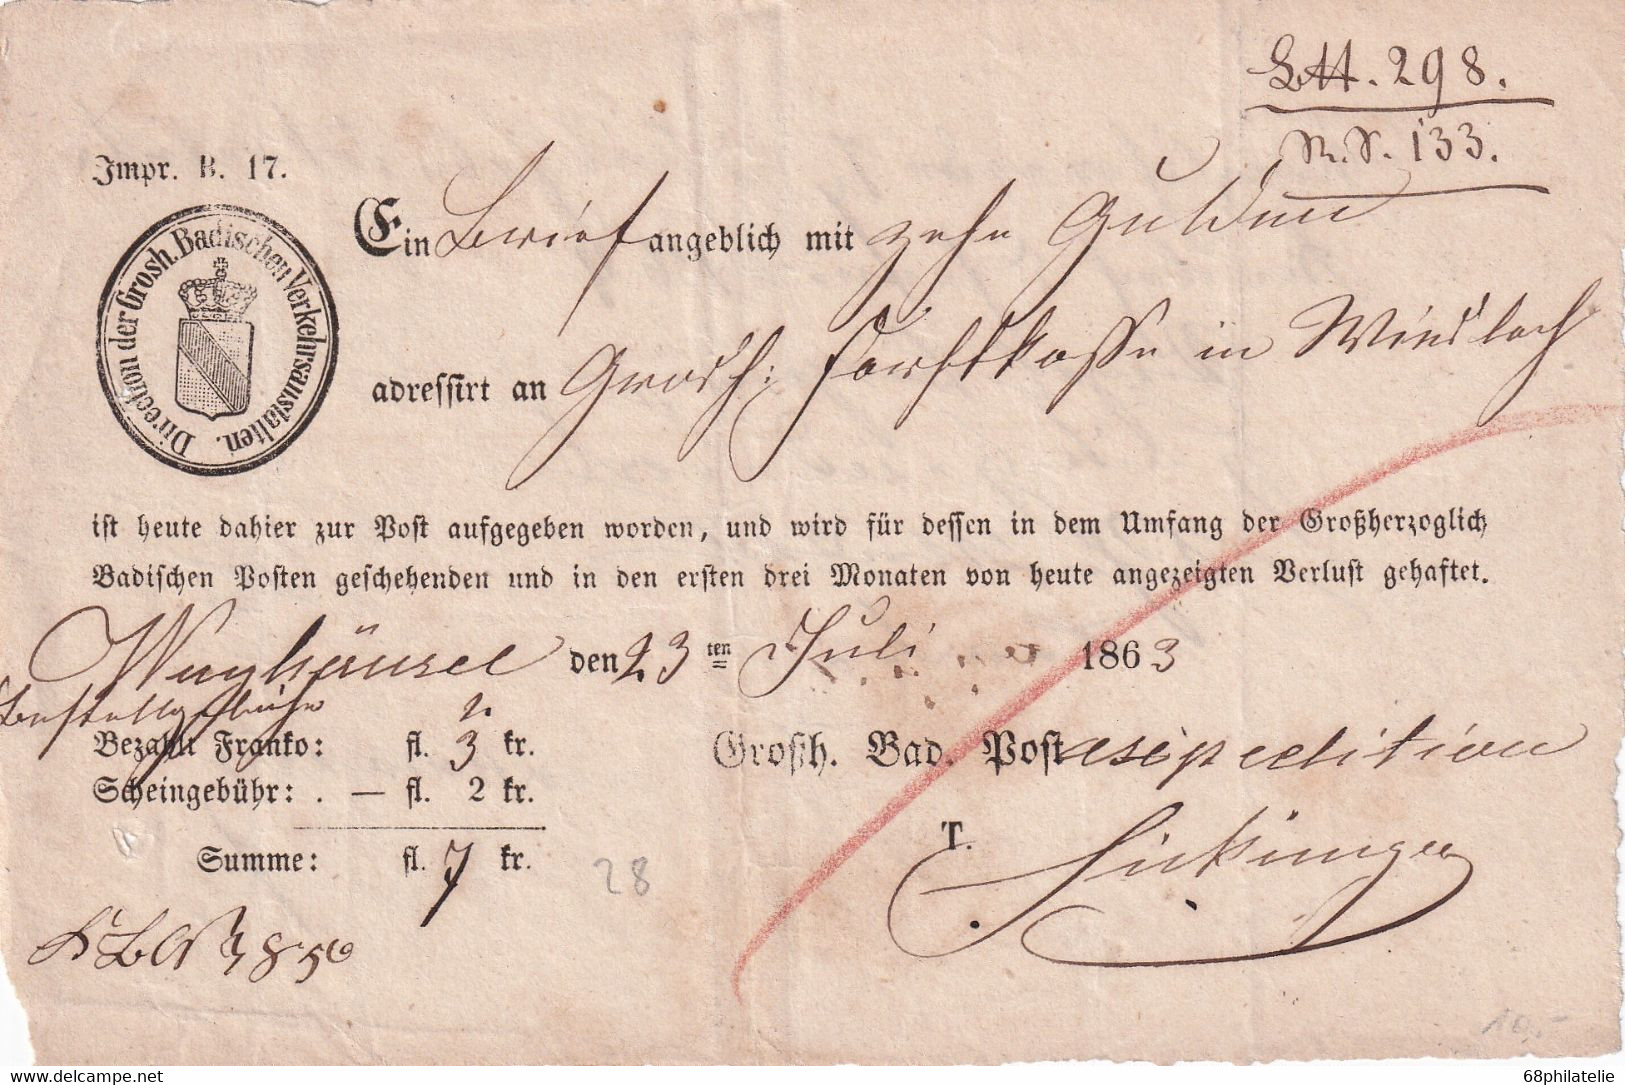 Litt. 298.
N. S. 133.
Impr. B. 17.
Direction der Grosh. Badischen Verkehrsanstalten.
Ein Brief angeblich mit zehn Gulden
adressirt an Grosh: Forstkasse in Wiesloch
ist heute dahier zur Post aufgegeben worden, und wird für dessen in dem Umfang der Großherzoglich
Badischen Posten geschehenden und in den ersten drei Monaten von heute angezeigten Verlust gehaftet.
Waghäusel den 23 ten Juli 1863
Bestellgebühr 2.
Bezahlt Franko: fl. 3 kr. Großh. Bad. Postexpedition
Scheingebühr: . — fl. 2 kr.
T. Sickinger
Summe: fl. 7 kr.
28
10.-
68philatelie